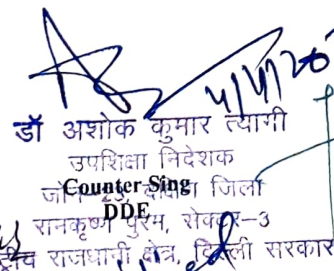 डॉ अशोक कुमार त्यागी
उपशिक्षा निदेशक
जिला
Counter Sing
DDE
रामकृष्ण पुरम, सेक्टर-3
राजधानी क्षेत्र, दिल्ली सरकार